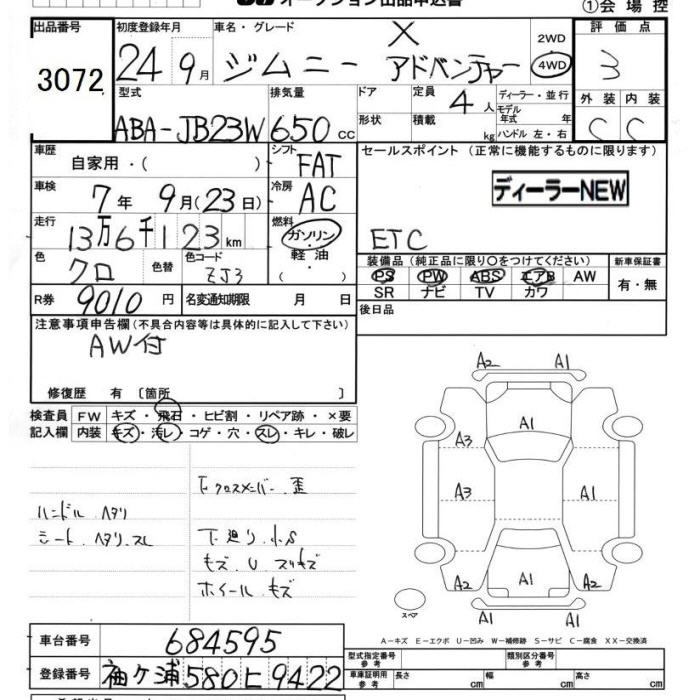 オークション出品申込書
①会場控
出品番号 初度登録年月 車名・グレード 2WD 評価点
3072 24 9月 ジムニー X アドベンチャー 4WD 3
型式 排気量 ドア 定員 4人 ディーラー・並行 外装 内装
ABA-JB23W 650cc 形状 積載 kg モデル年式 年 ハンドル 左・右 C C
車歴 自家用・( ) シフト FAT セールスポイント (正常に機能するものに限ります)
車検 7年 9月(23日) 冷房 AC ディーラーNEW
走行 13万6千123km 燃料 ガソリン 軽油 ・( ) ETC
色 クロ 色替 色コード ZJ3 装備品 (純正品に限り○をつけてください) 新車保証書
PS PW ABS エアB AW 有・無
R券 9010円 名変通知期限 月 日 SR ナビ TV カワ
後日品
注意事項申告欄(不具合内容等は具体的に記入して下さい)
AW付
修復歴 有 〔箇所 〕
検査員 FW キズ・飛石・ヒビ割・リペア跡・×要
記入欄 内装 キズ・汚レ・コゲ・穴・スレ・キレ・破レ
A2 A1
A1
A3
A3 A1
A1
A2 A2
A1 A1
スペア
F クロスメンバー 歪
ハンドル ヘタリ
シート ヘタリ スレ
下廻り 小S
キズ U スリキズ
ホイール キズ
A-キズ E-エクボ U-凹み W-補修跡 S-サビ C-腐食 XX-交換済
車台番号 684595
型式指定番号 参考 類別区分番号 参考
登録番号 袖ケ浦580ヒ9422
車庫証明用 参考 長さ cm 幅 cm 高さ cm